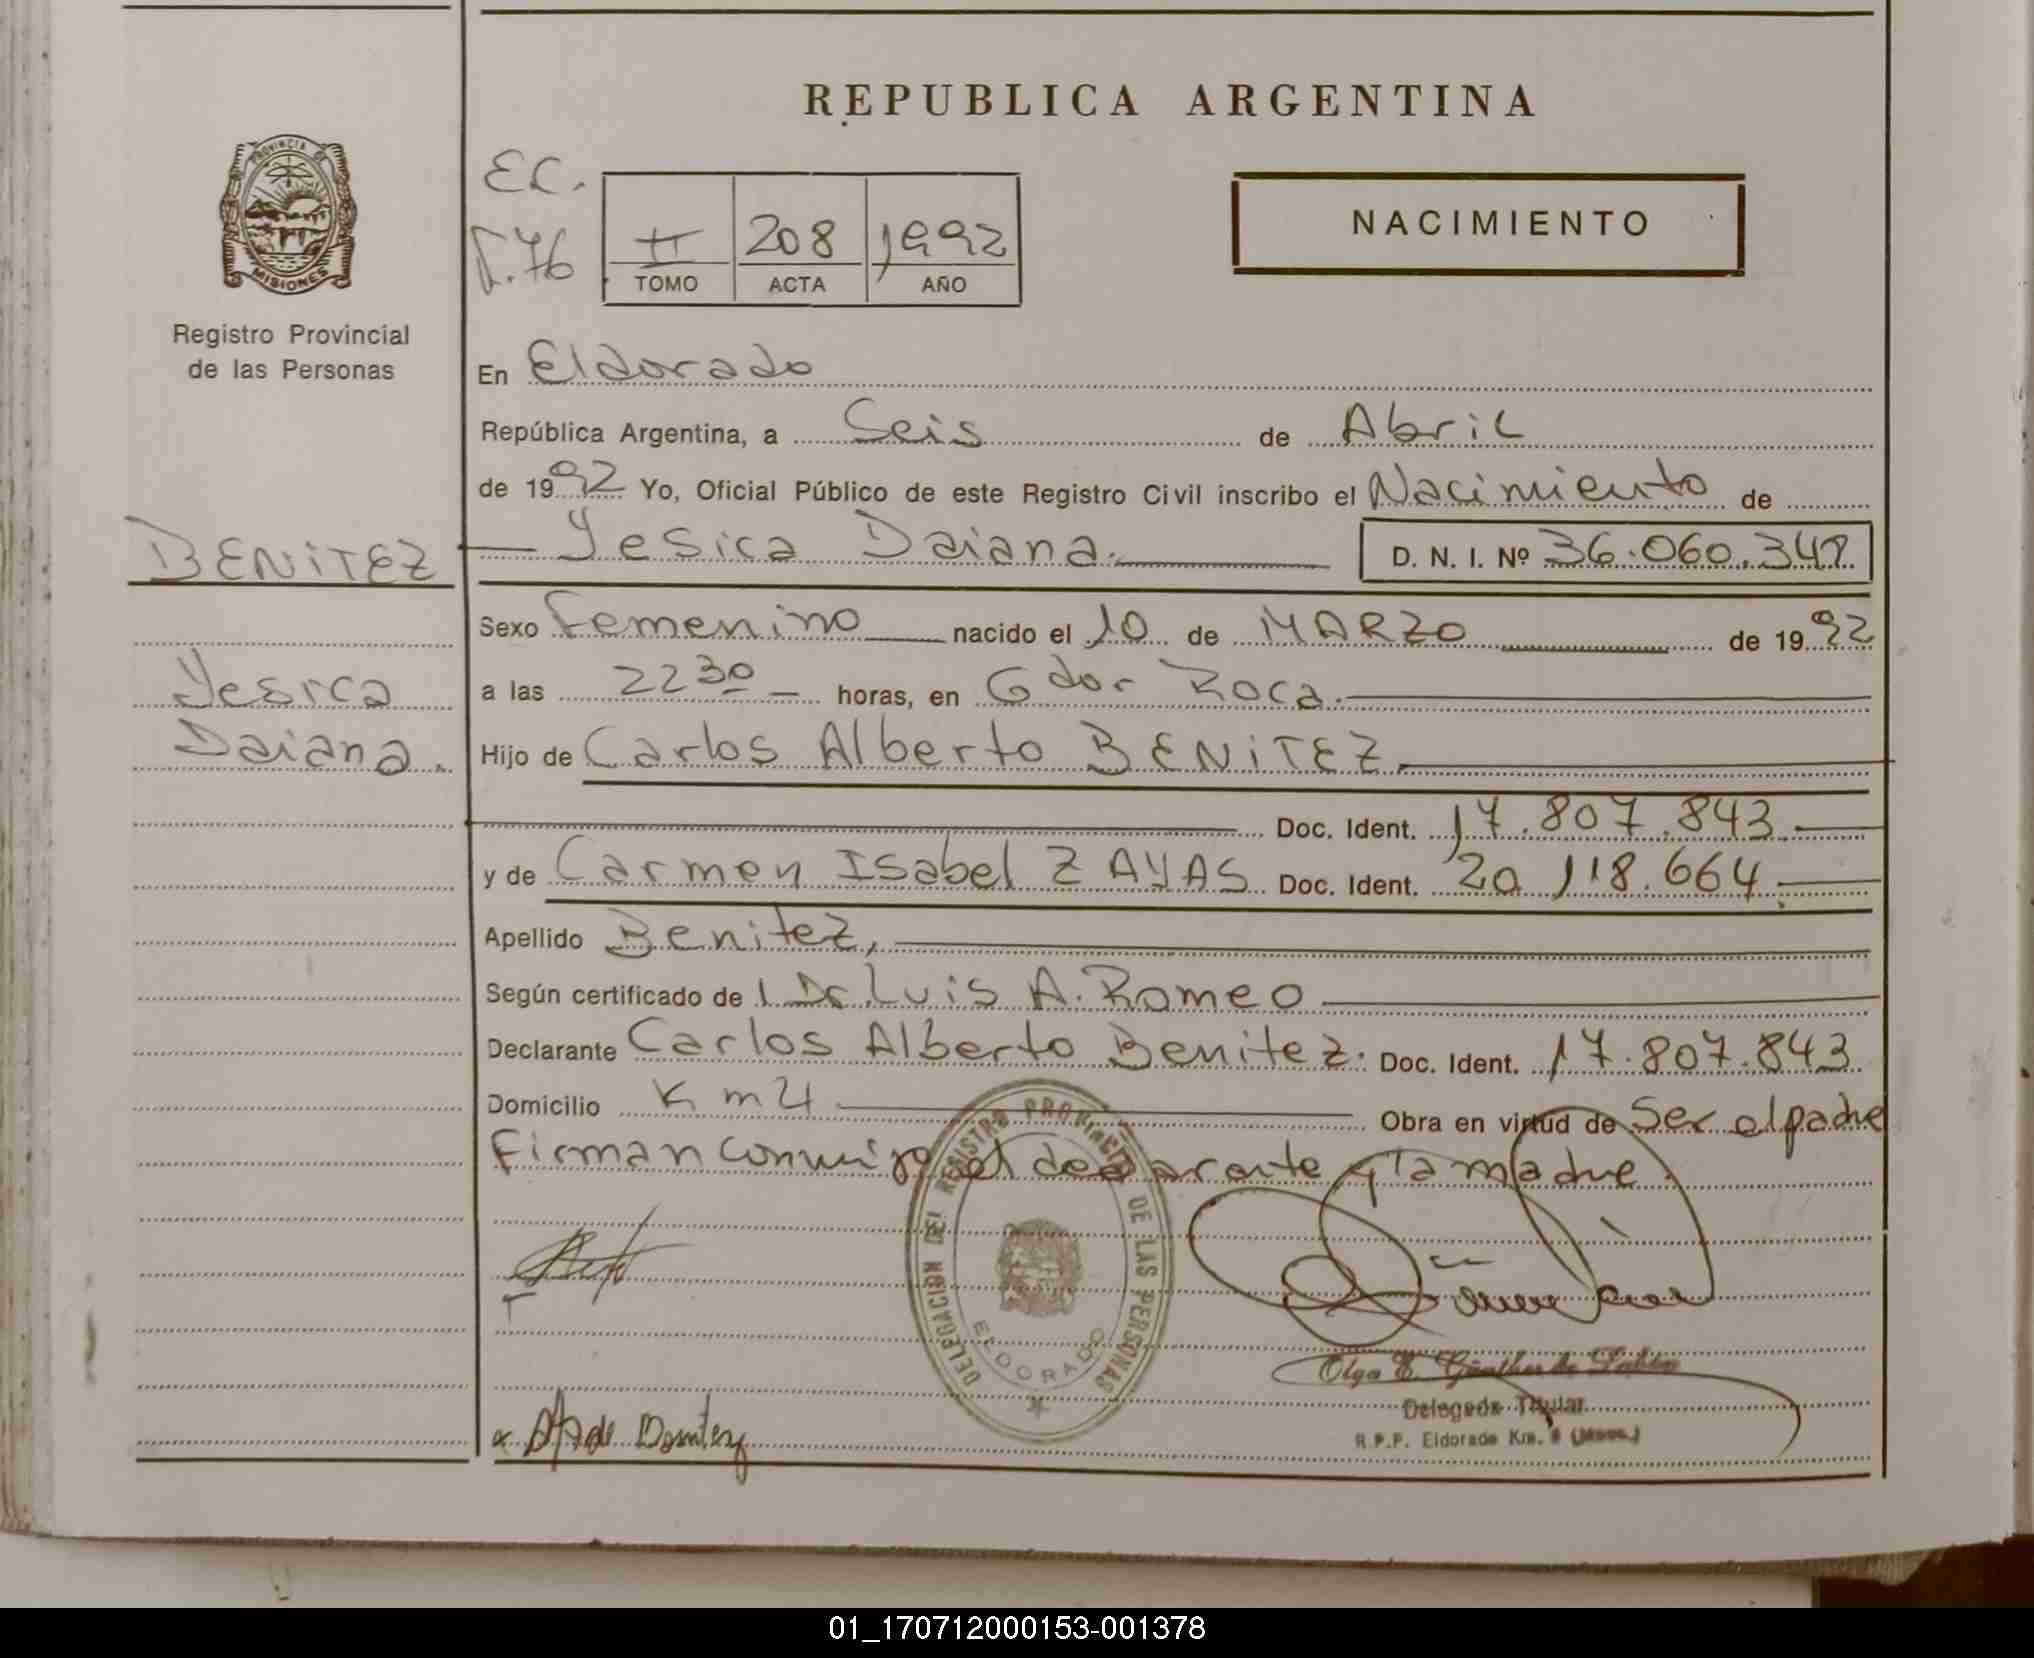 REPUBLICA ARGENTINA
PROVINCIA DE MISIONES
Registro Provincial
de las Personas
EC.
II 208 1992
TOMO ACTA AÑO
NACIMIENTO
En Eldorado
República Argentina, a Seis de Abril
de 1992 Yo, Oficial Público de este Registro Civil inscribo el Nacimiento de
BENITEZ
Yesica Daiana. D. N. I. Nº 36.060.348
Sexo Femenino nacido el 10 de MARZO de 1992
Yesica
Daiana.
a las 22 30 horas, en Gdor Roca.
Hijo de Carlos Alberto BENITEZ
Doc. Ident. 17.807.843
y de Carmen Isabel ZAYAS Doc. Ident. 20.118.664
Apellido Benitez,
Según certificado de Dr Luis A. Romeo
Declarante Carlos Alberto Benitez. Doc. Ident. 17.807.843
Domicilio Km 4 Obra en virtud de Ser el padre
Firman conmigo el declarante y la madre.
DELEGACION DEL REGISTRO PROVINCIAL DE LAS PERSONAS
ELDORADO
Olga E. Günther de
Delegada Titular
R.P.P. Eldorado Km.
de Benitez
01_170712000153-001378